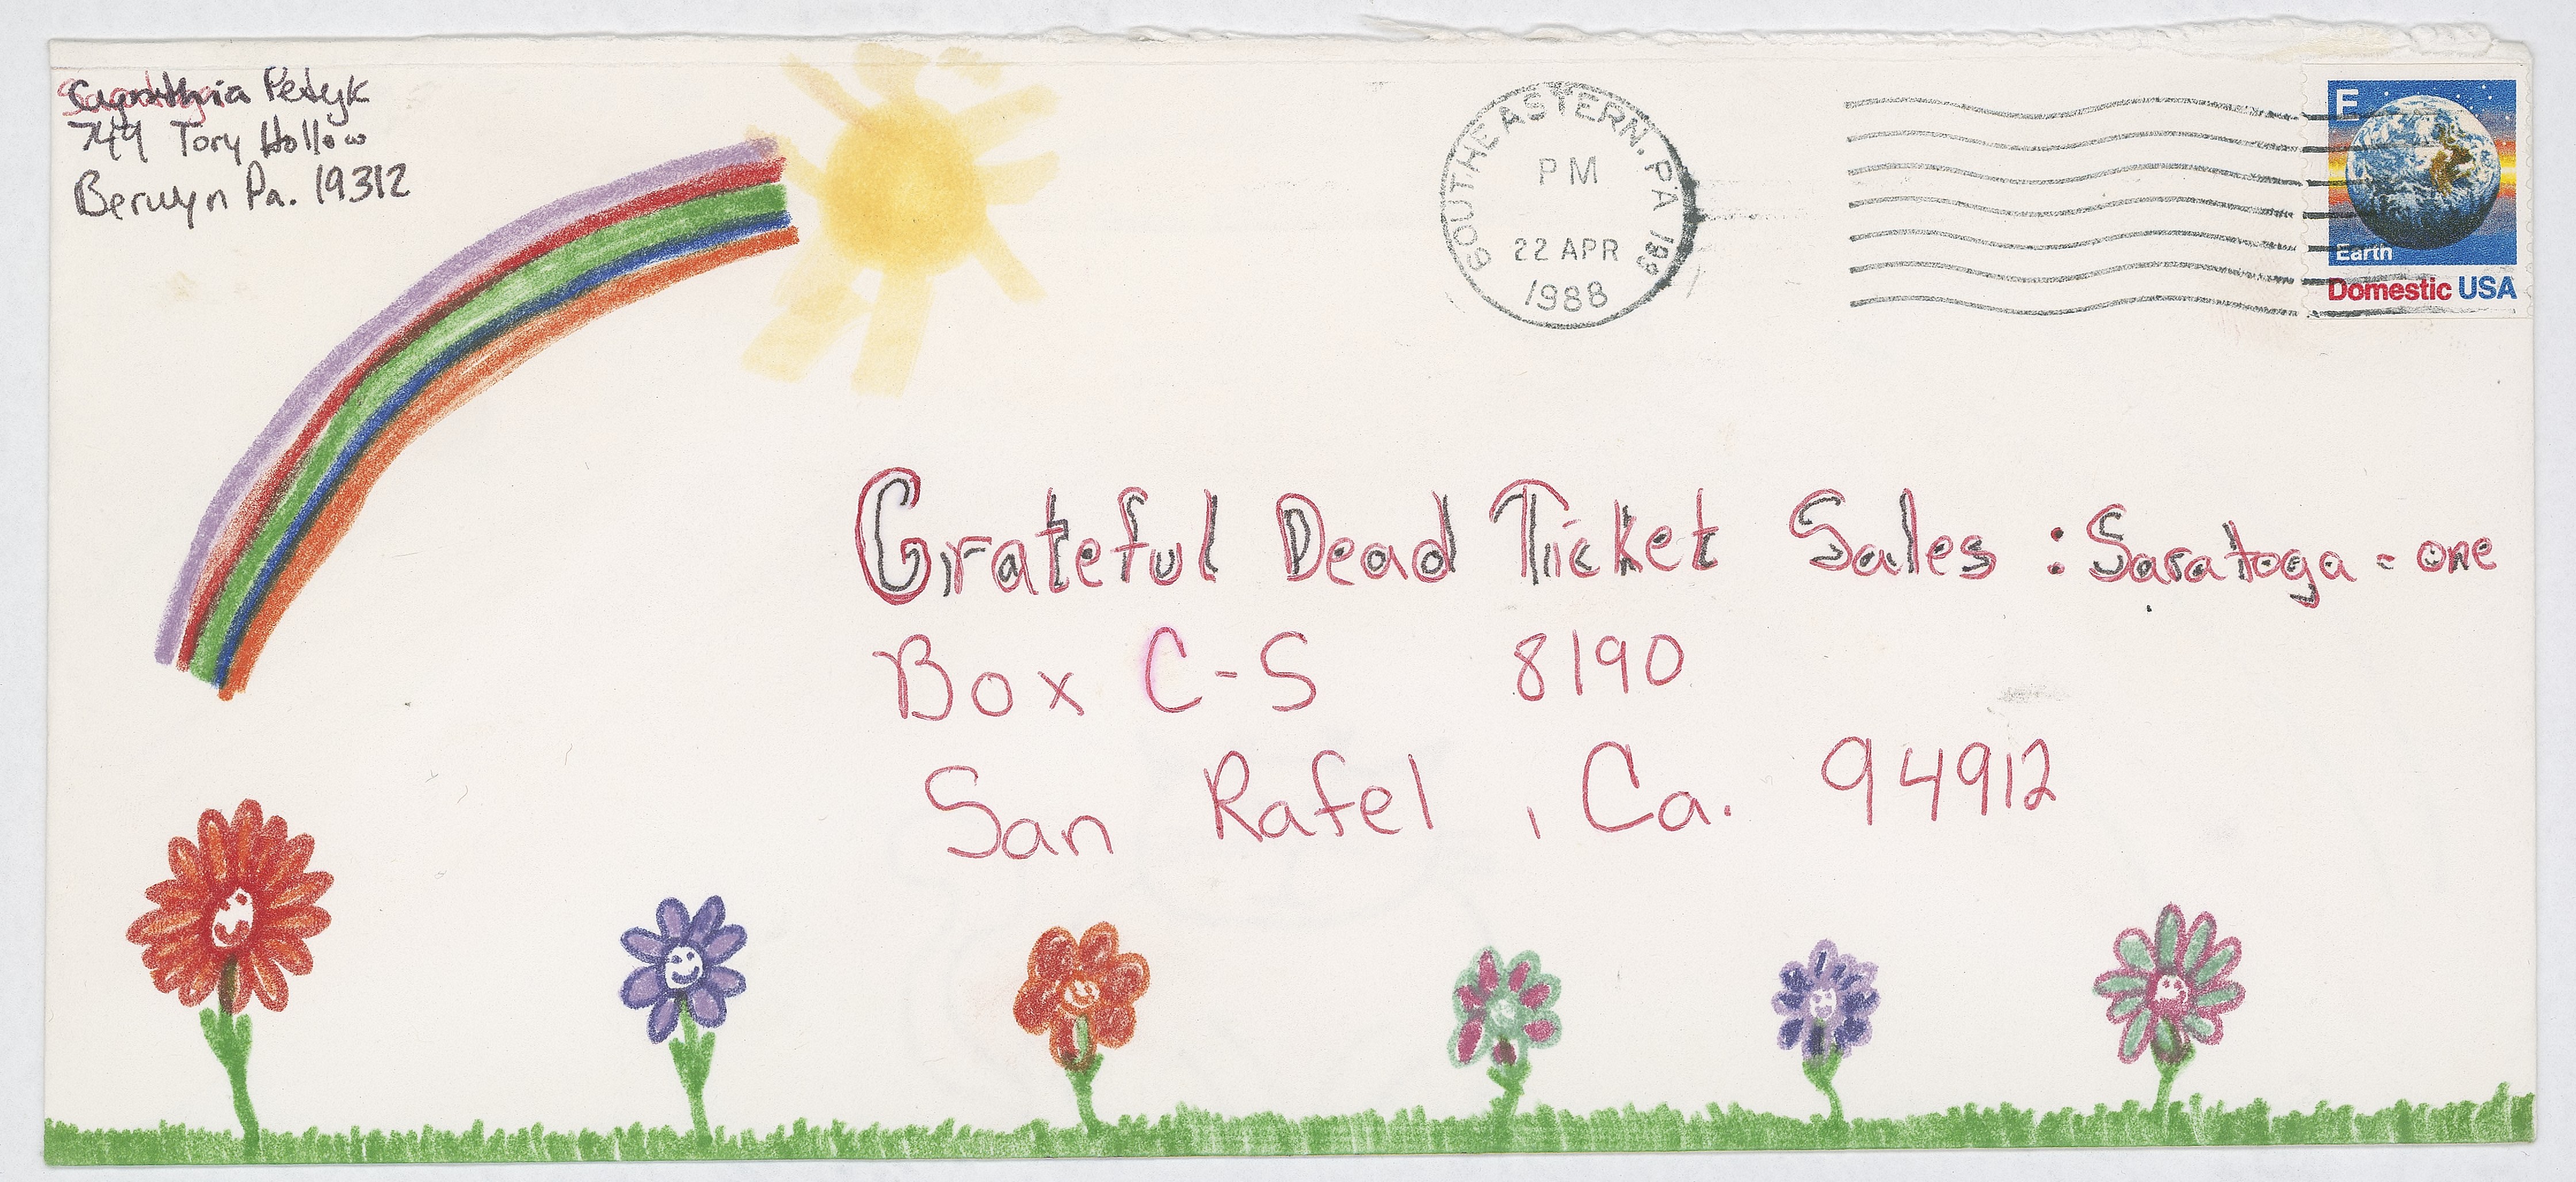 Petyk
744 Tory Hollow
Berwyn Pa. 19312
SOUTHEASTERN, PA 199
PM
22 APR
1988
E
Earth
Domestic USA
Grateful Dead Ticket Sales : Saratoga - one
Box C-S 8190
San Rafel , Ca. 94912